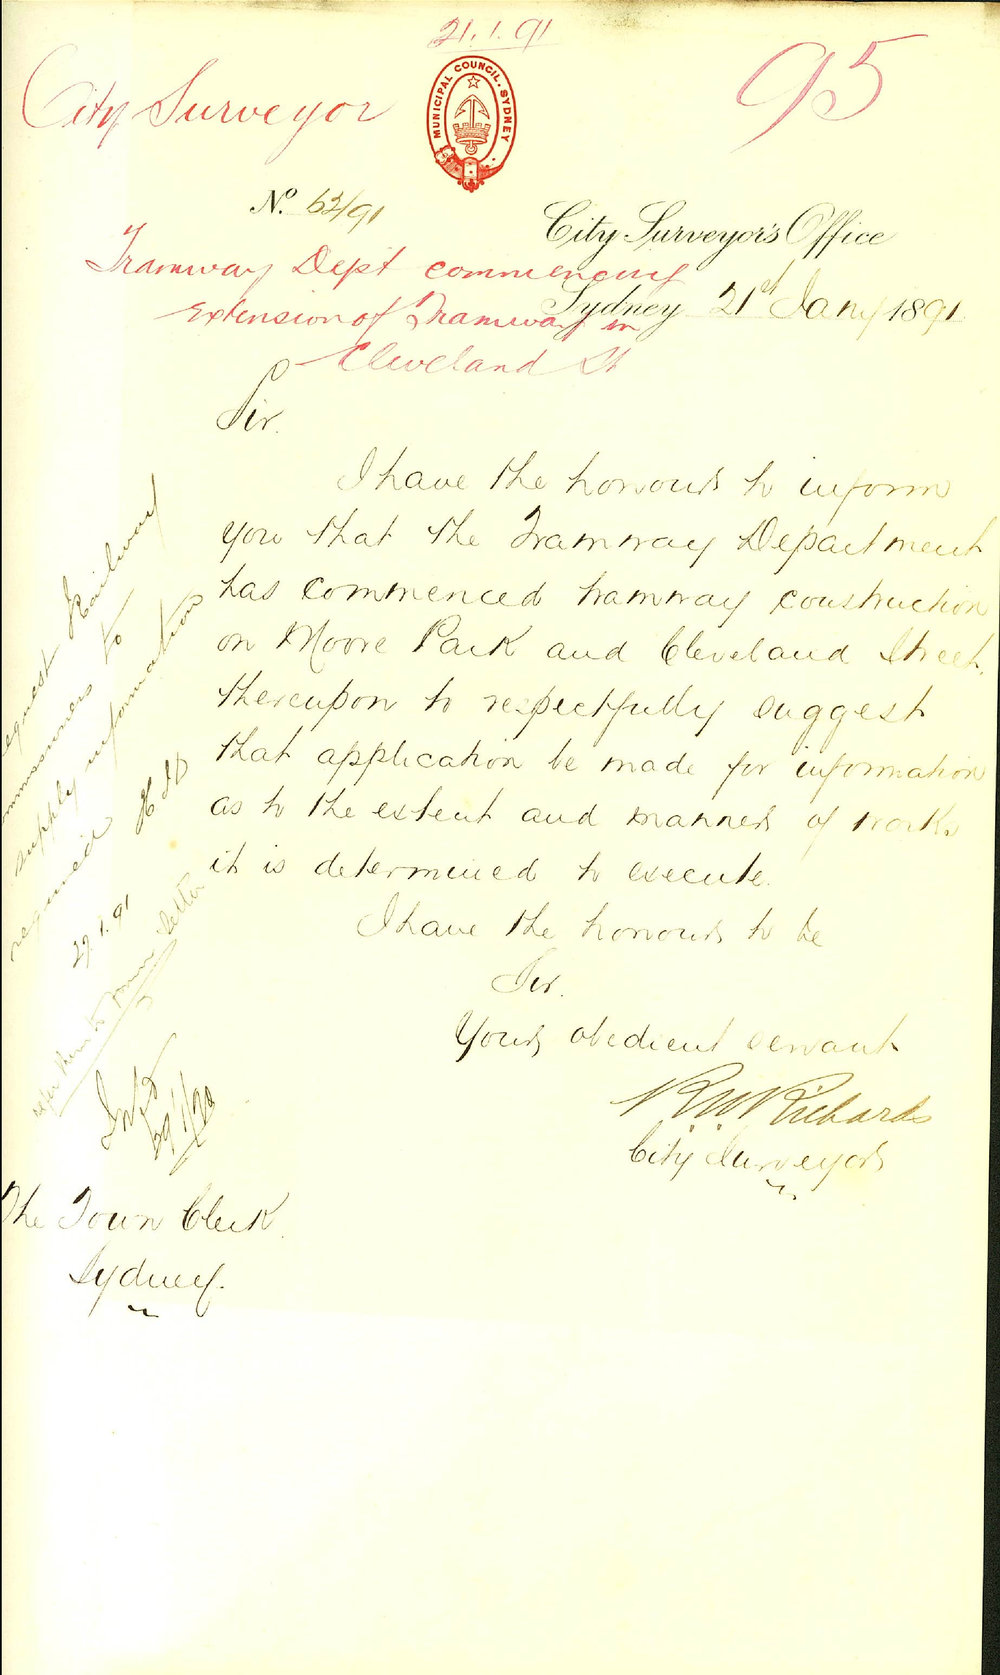 21.1.91
City Surveyor
95
MUNICIPAL COUNCIL. SYDNEY
No. 62/91
City Surveyor's Office
Tramway Dept commencing
extension of Tramway in
Cleveland St
Sydney 21st Jany 1891
Sir.
I have the honour to inform
you that the Tramway Department
has commenced tramway construction
on Moore Park and Cleveland Street,
thereupon to respectfully suggest
that application be made for information
as to the extent and manner of works
it is determined to execute.
I have the honour to be
Sir.
Your obedient servant
R W Richards
City Surveyor
equest Railway
mmissioners to
supply information
required
29.1.91
letter
The Town Clerk.
Sydney.